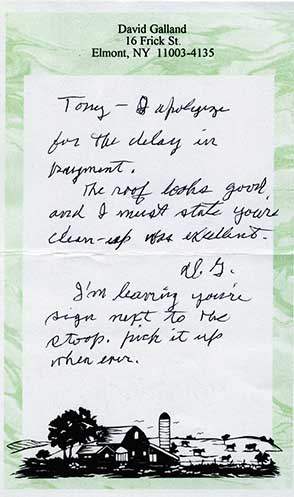 David Galland
16 Frick St.
Elmont, NY 11003-4135
Tony - I apologize
for the delay in
payment.
The roof looks good,
and I must state yours
clean-up was excellent.
D. G.
I'm leaving you're
sign next to the
stoop. pick it up
when ever.